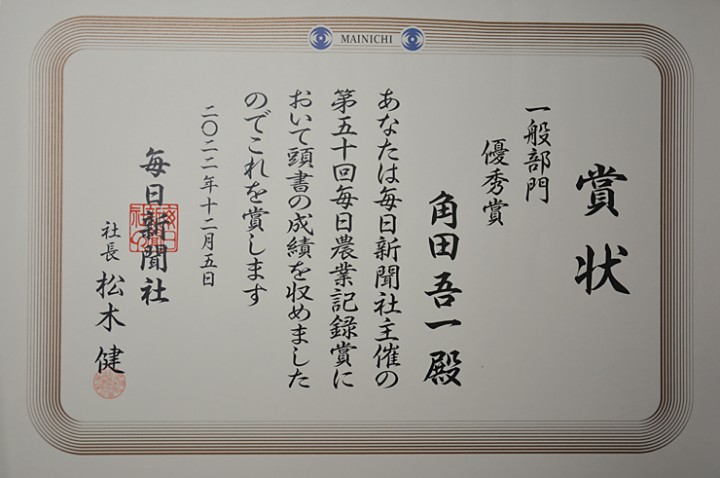 MAINICHI
賞状
一般部門
優秀賞
角田吾一殿
あなたは毎日新聞社主催の
第五十回毎日農業記録賞に
おいて頭書の成績を収めました
のでこれを賞します
二〇二二年十二月五日
毎日新聞社
社長 松木健